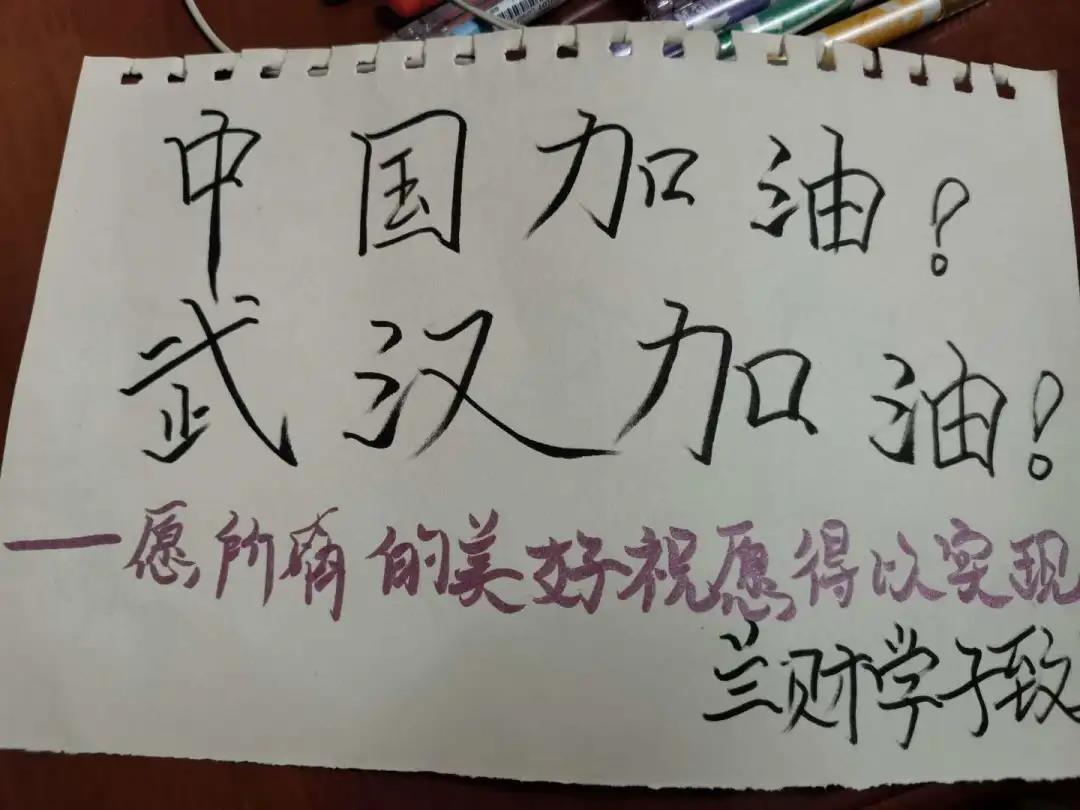 中国加油!
武汉加油!
——愿所有的美好祝愿得以实现
兰财学子致